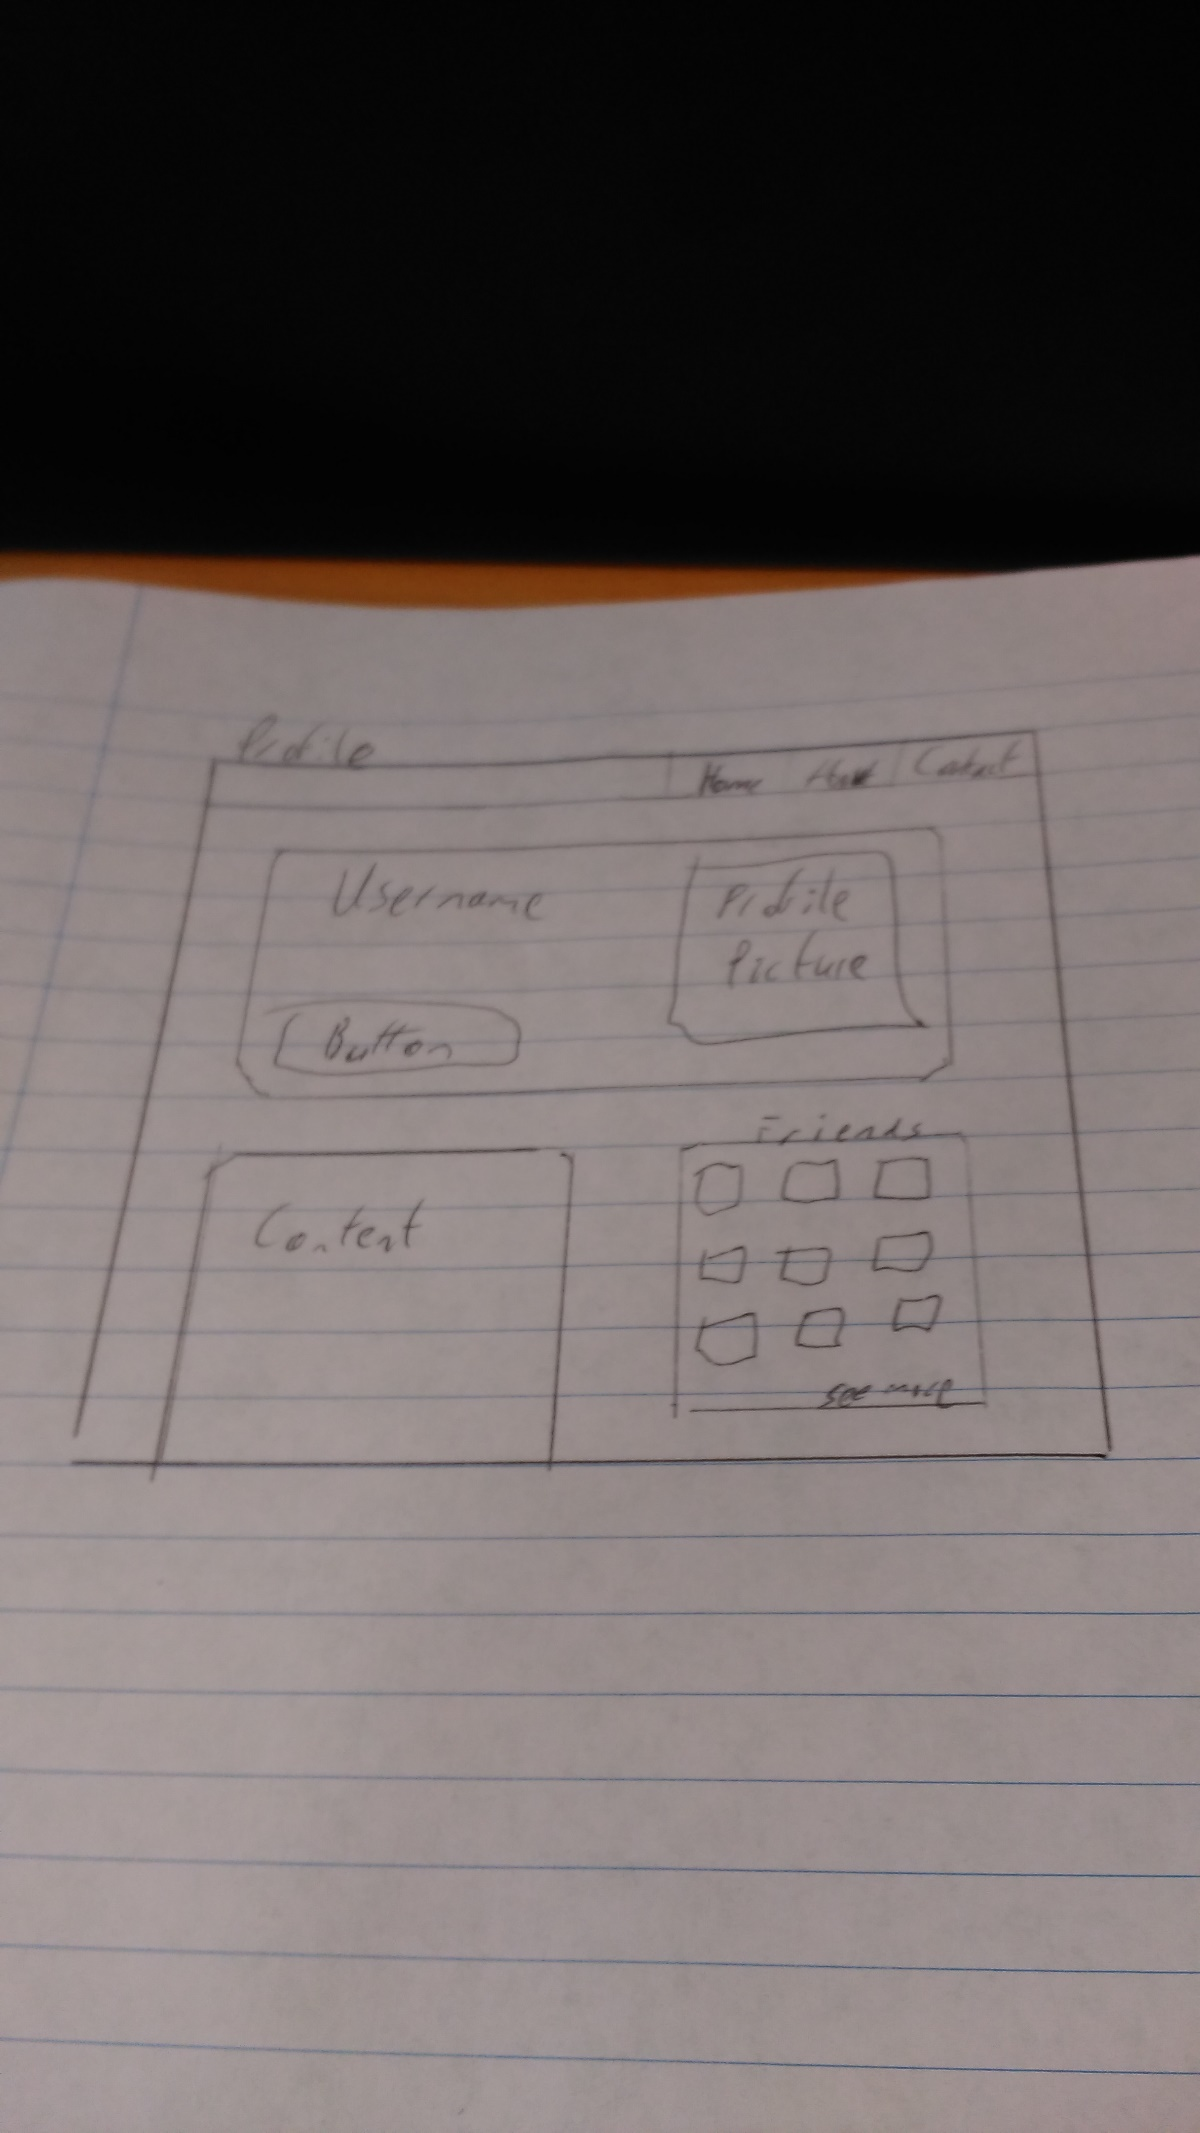 Profile
Home About Contact
Username
Profile
Picture
Button
Friends
Content
see more